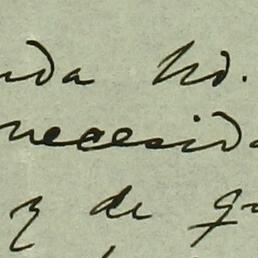 nda Ud.
necesida
y de qu